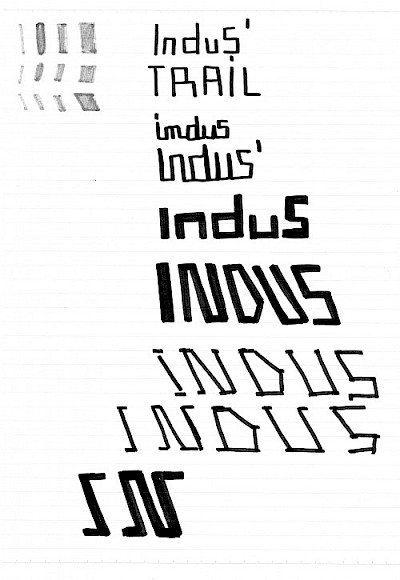 Indus'
TRAIL
indus
Indus'
induS
INDUS
iNDUS
INDUS
IN